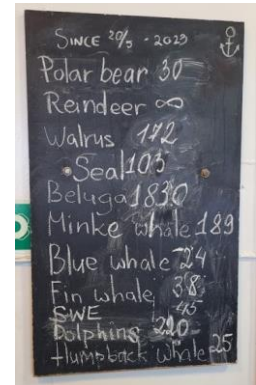 SINCE 20/5 - 2023
Polar bear 30
Reindeer ∞
Walrus 172
Seal 103
Beluga 1830
Minke whale 189
Blue whale 24
Fin whale 38
SWE 45
Dolphins 220
Humpback whale 25